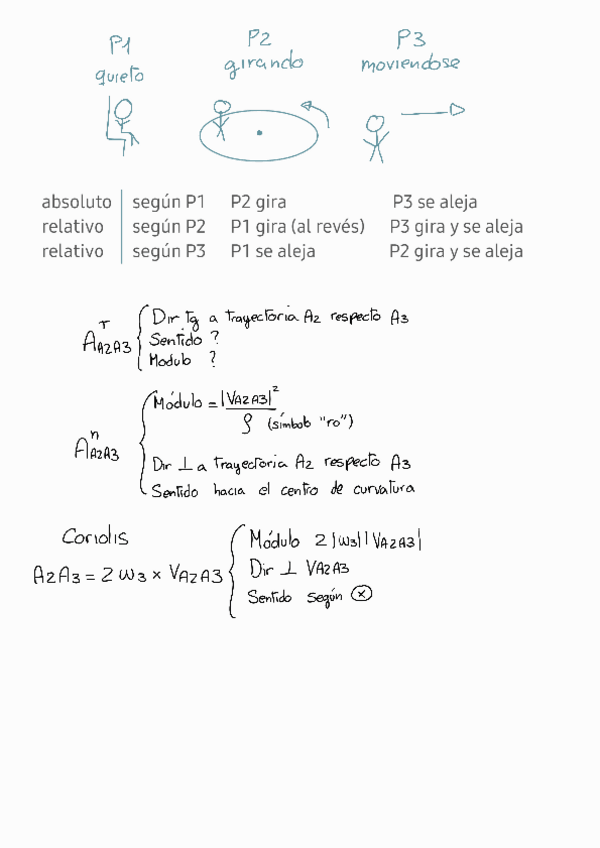 P1 P2 P3
quieto girando moviendose
absoluto según P1 P2 gira P3 se aleja
relativo según P2 P1 gira (al revés) P3 gira y se aleja
relativo según P3 P1 se aleja P2 gira y se aleja
A^T A2A3 Dir tg a trayectoria A2 respecto A3
Sentido ?
Modulo ?
A^n A2A3 Módulo = |VA2A3|² / ρ (símbolo "ro")
Dir ⊥ a trayectoria A2 respecto A3
Sentido hacia el centro de curvatura
Coriolis
A2A3 = 2 ω3 × VA2A3
Módulo 2 |ω3| |VA2A3|
Dir ⊥ VA2A3
Sentido según ⊗